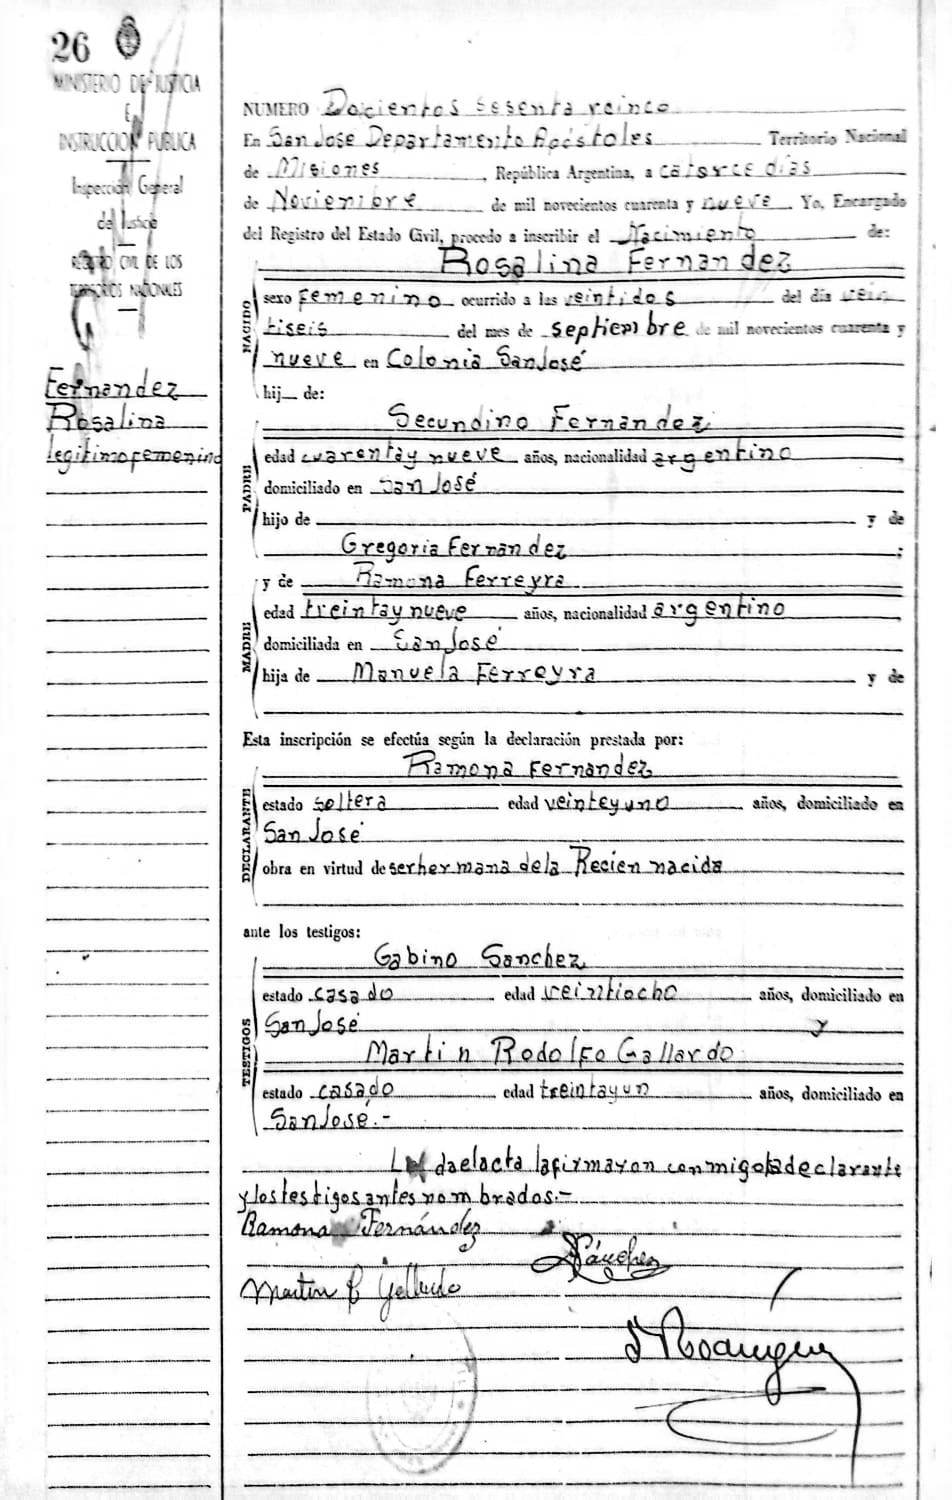 26
MINISTERIO DE JUSTICIA
E
INSTRUCCION PUBLICA
Inspección General
de Justicia
REGISTRO CIVIL DE LOS
TERRITORIOS NACIONALES
Fernandez
Rosalina
legitimo femenino
NUMERO Docientos sesenta y cinco
En San Jose Departamento Apóstoles Territorio Nacional
de Misiones, República Argentina, a catorce días
de Noviembre de mil novecientos cuarenta y nueve. Yo, Encargado
del Registro del Estado Civil, procedo a inscribir el Nacimiento de:
Rosalina Fernandez
NACIDO
sexo Femenino ocurrido a las veintidos del día vein
tiseis del mes de septiembre de mil novecientos cuarenta y
nueve en Colonia San José
hij de:
Secundino Fernandez
PADRE
edad cuarenta y nueve años, nacionalidad argentino,
domiciliado en San José
hijo de y de
Gregoria Fernandez;
y de Ramona Ferreyra
MADRE
edad treinta y nueve años, nacionalidad argentino
domiciliada en San José
hija de Manuela Ferreyra y de
Esta inscripción se efectúa según la declaración prestada por:
Ramona Fernandez
DECLARANTE
estado soltera edad veinteyuno años, domiciliado en
San José
obra en virtud de ser hermana de la Recien nacida
ante los testigos:
Gabino Sanchez
TESTIGOS
estado casado edad veintiocho años, domiciliado en
San José y
Martin Rodolfo Gallardo
estado casado edad treinta y un años, domiciliado en
San José.-
da el acta la firmaron conmigo la declarante
y los testigos antes nombrados.-
Ramona Fernández
Sánchez
Martin R Gallardo
Rodriguez